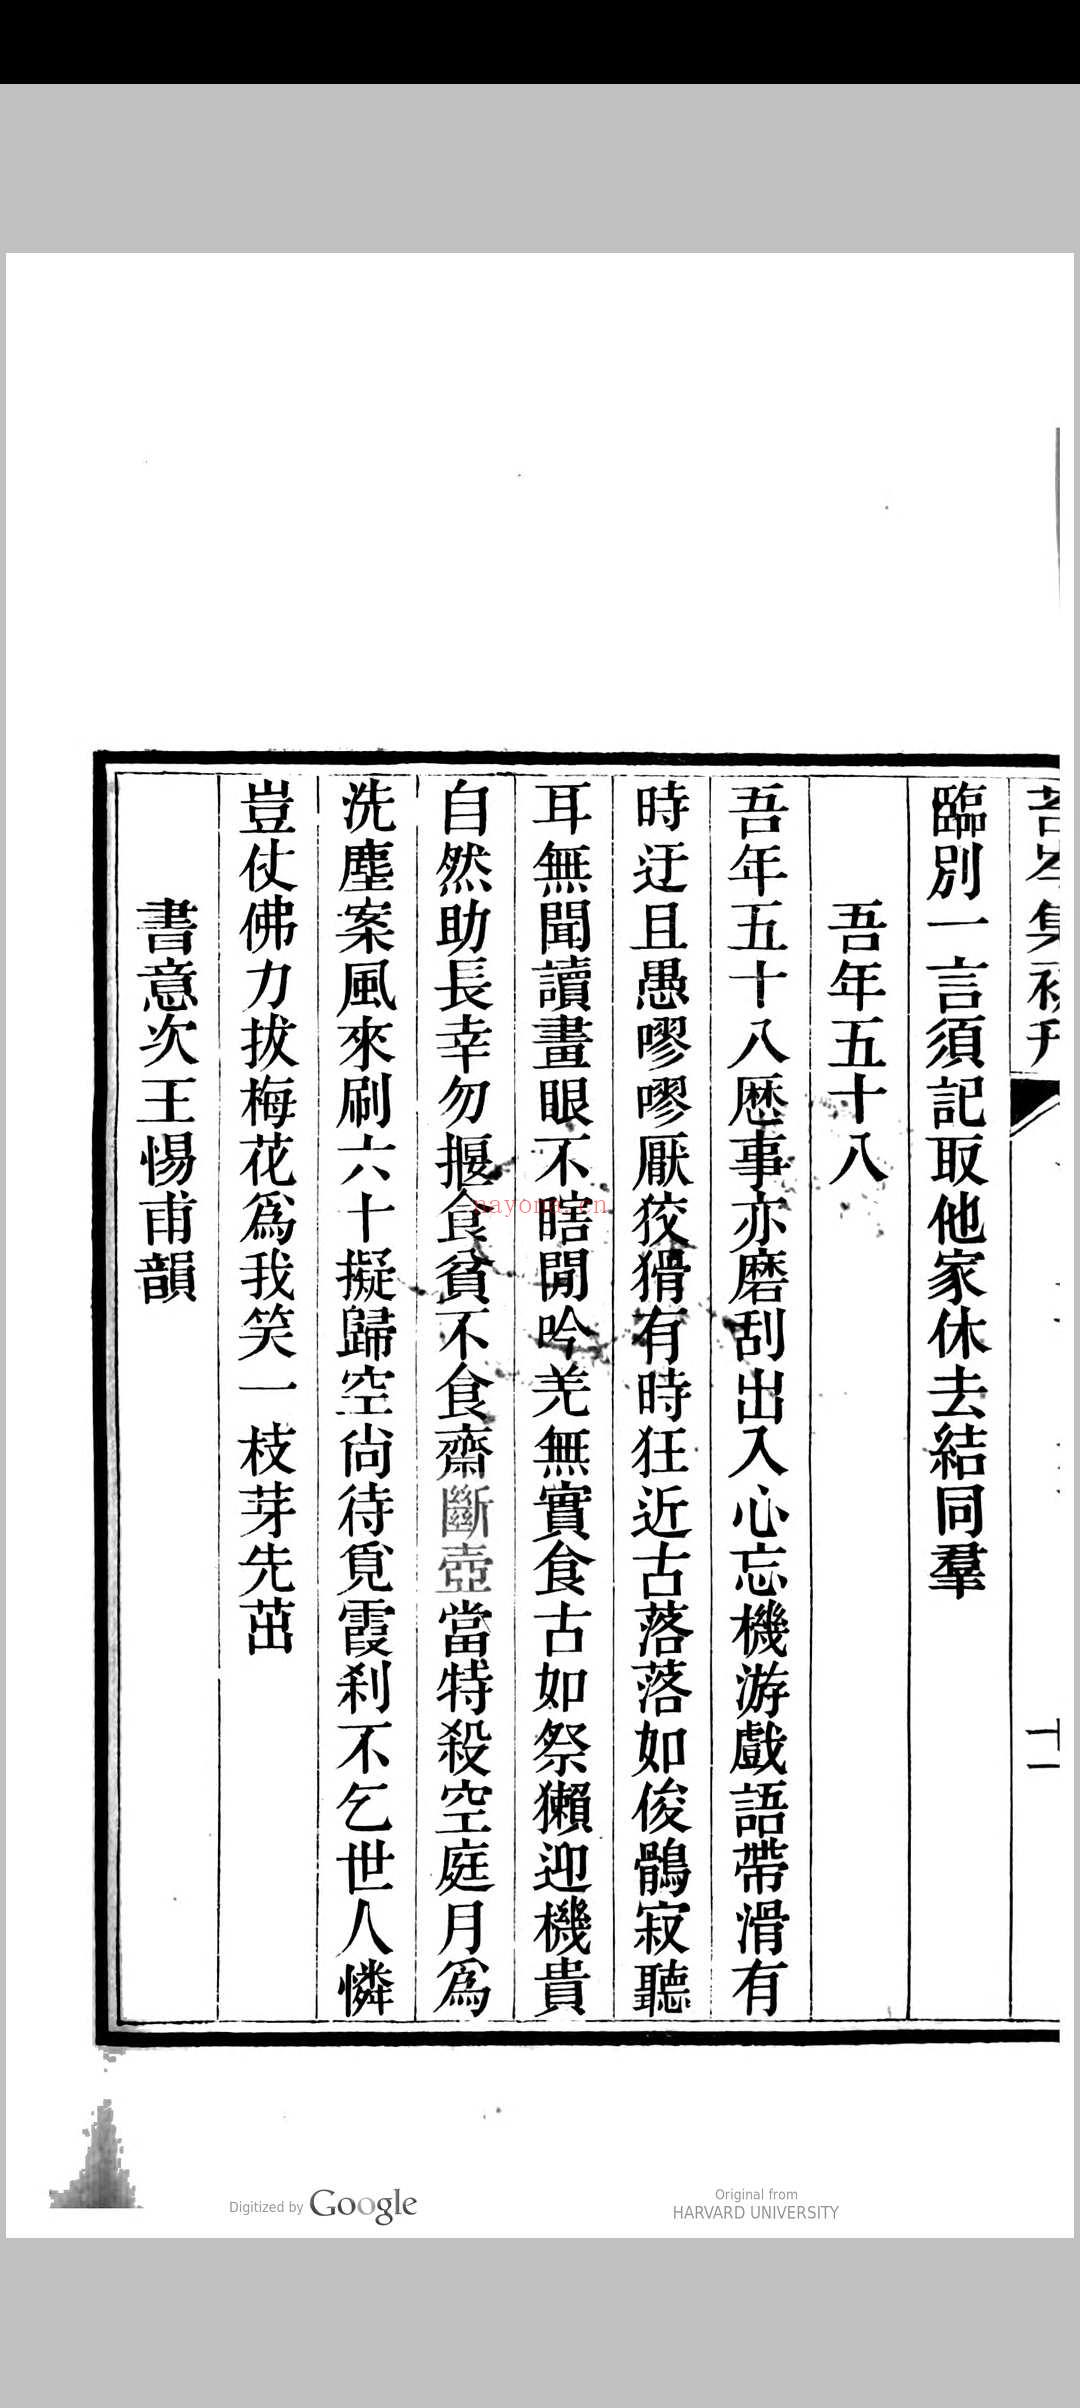 臨別一言須記取他家休去結同羣
吾年五十八
吾年五十八歷事亦磨刮出入心忘機游戲語帶滑有
時迂且愚嘐嘐厭狡猾有時狂近古落落如俊鶻寂聽
耳無聞讀畫眼不瞎閒吟羌無實食古如祭獺迎機貴
自然助長幸勿揠食貧不食齋斷壺當特殺空庭月爲
洗塵案風來刷六十擬歸空尙待覓霞刹不乞世人憐
豈仗佛力拔梅花爲我笑一枝芽先茁
書意次王惕甫韻
十一
nayona.cn
Digitized by Google
Original from
HARVARD UNIVERSITY